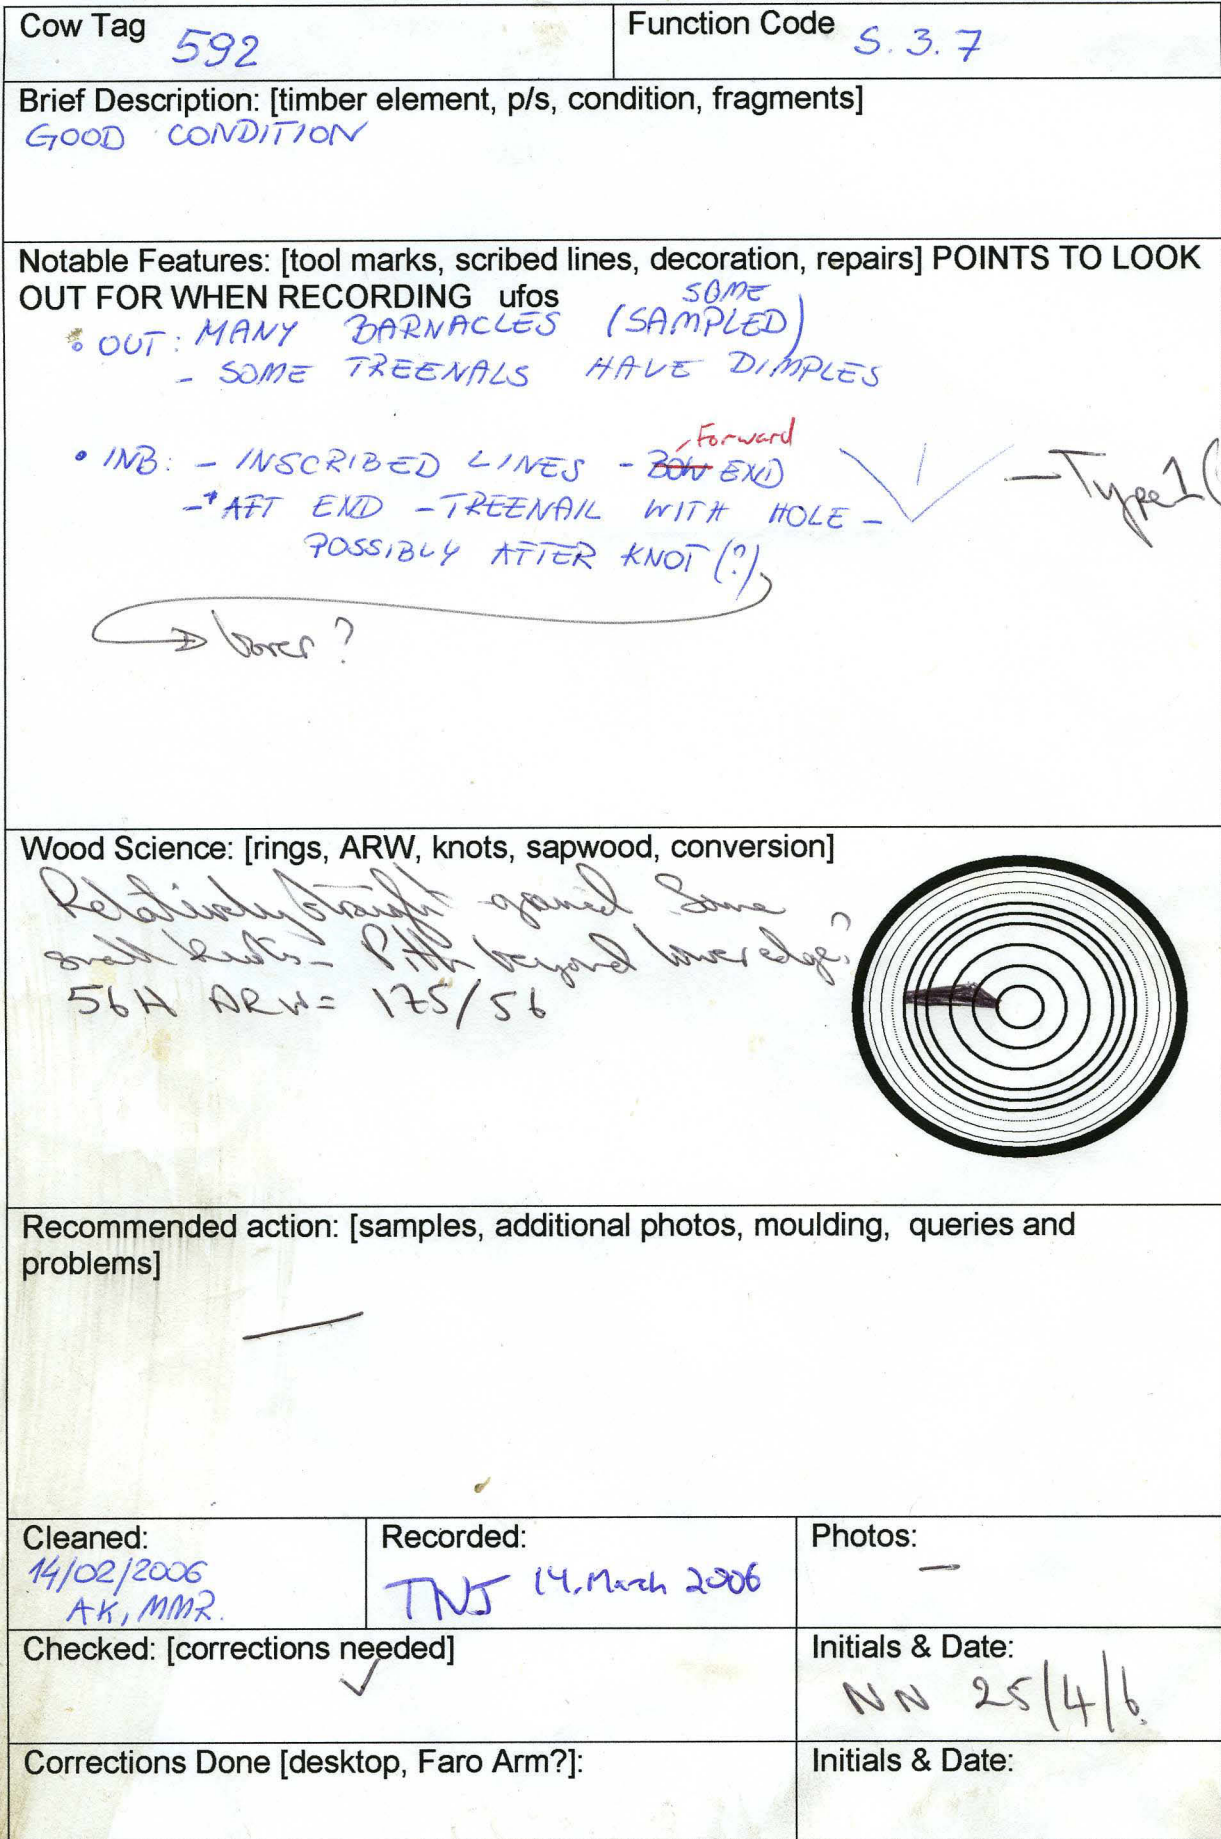 Cow Tag 592
Function Code S.3.7
Brief Description: [timber element, p/s, condition, fragments]
GOOD CONDITION
Notable Features: [tool marks, scribed lines, decoration, repairs] POINTS TO LOOK
OUT FOR WHEN RECORDING ufos
SOME
• OUT: MANY BARNACLES (SAMPLED)
- SOME TREENALS HAVE DIMPLES
Forward
• INB: - INSCRIBED LINES - BOW END
- AFT END - TREENAIL WITH HOLE -
POSSIBLY AFTER KNOT (?)
- Type 1 (
borer ?
Wood Science: [rings, ARW, knots, sapwood, conversion]
Relatively straight grained Some
small knots - Pith beyond lower edge?
56H ARW= 175/56
Recommended action: [samples, additional photos, moulding, queries and
problems]
—
Cleaned:
14/02/2006
AK, MMR.
Recorded:
TNJ 14. March 2006
Photos:
—
Checked: [corrections needed]
✓
Initials & Date:
NN 25/4/6.
Corrections Done [desktop, Faro Arm?]:
Initials & Date: